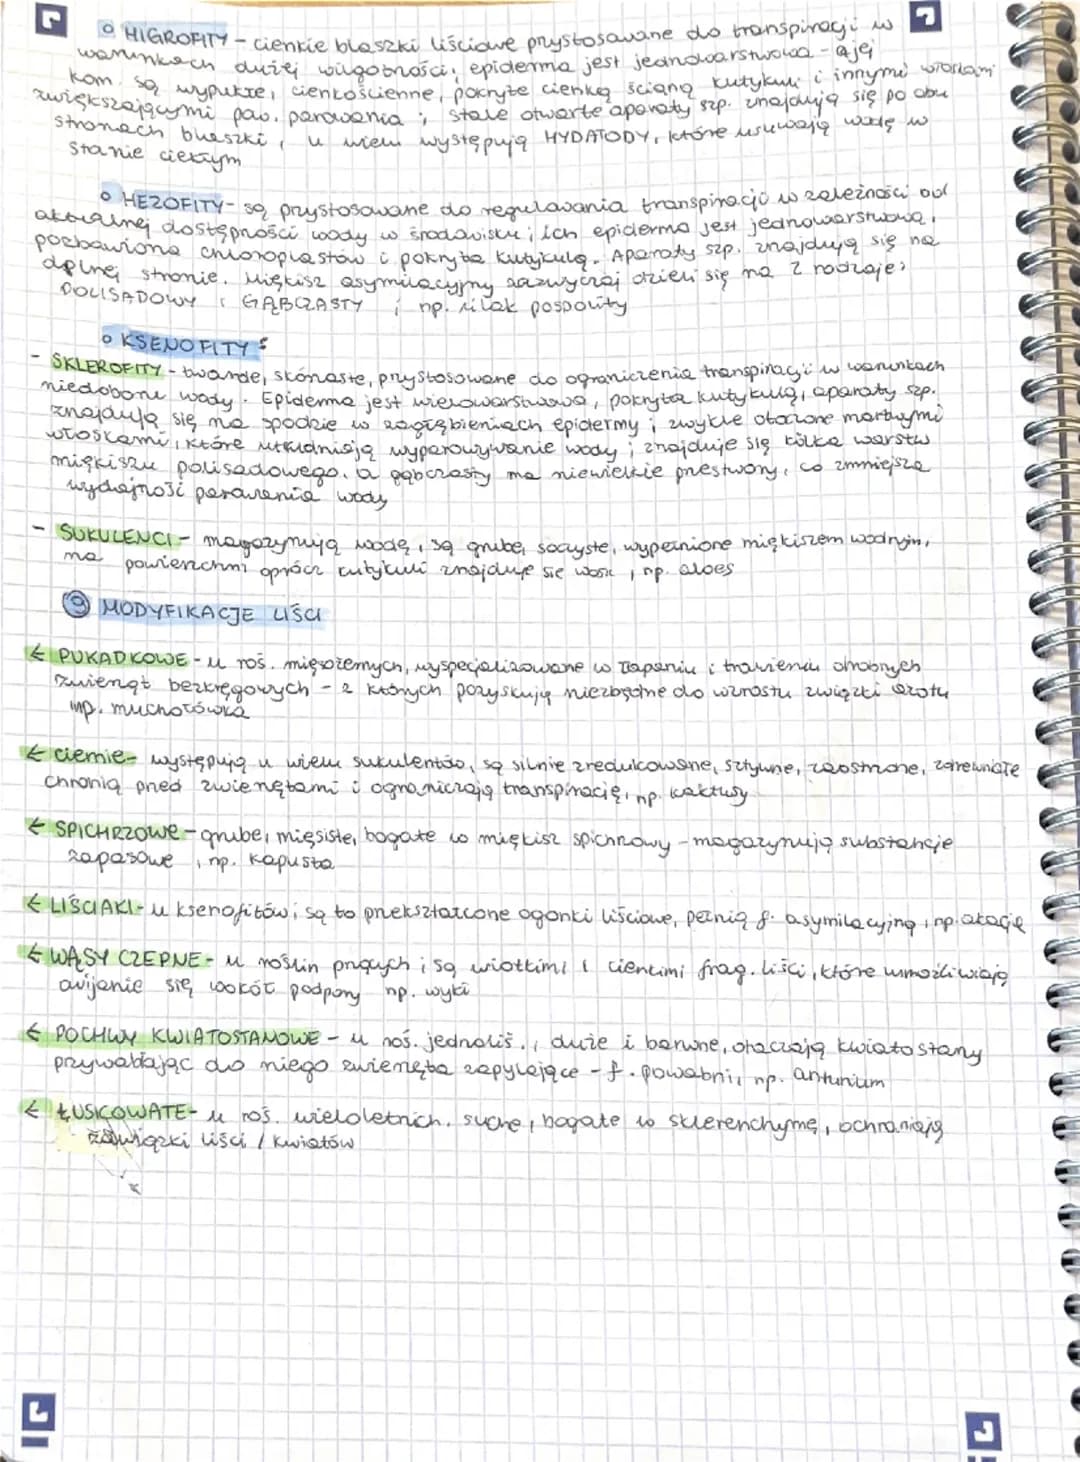 o HIGROFITY – cienkie blaszki liściowe przystosowane do transpiracji w
warunkach dużej wilgotności; epiderma jest jednowarstwowa - a jej
kom. są wypukłe, cienkościenne, pokryte cienką ścianą kutykuli i innymi włoskami
zwiększającymi pow. parowania ; stale otwarte aparaty szp. znajdują się po obu
stronach blaszki, u wielu występują HYDATODY, które usuwają wodę w
stanie ciekłym
o MEZOFITY- są przystosowane do regulowania transpiracji w zależności od
aktualnej dostępności wody w środowisku; ich epiderma jest jednowarstwowa,
pozbawiona chloroplastów i pokryta kutykulą. Aparaty szp. znajdują się na
dolnej stronie. Miękisz asymilacyjny zazwyczaj dzieli się na 2 rodzaje:
POLISADOWY i GĄBCZASTY ; np. lilak pospolity
o KSENOFITY:
- SKLEROFITY - twarde, skórzaste, przystosowane do ograniczenia transpiracji w warunkach
niedoboru wody. Epiderma jest wielowarstwowa, pokryta kutykulą, aparaty szp.
znajdują się na spodzie w zagłębieniach epidermy ; zwykle otoczone martwymi
włoskami, które utrudniają wyparowywanie wody ; znajduje się kilka warstw
miękiszu polisadowego, a gąbczasty ma niewielkie przestwory, co zmniejsza
wydajność parowania wody
- SUKULENCI - magazynują wodę, są grube, soczyste, wypełnione miękiszem wodnym,
na powierzchni oprócz kutykuli znajduje się wosk, np. aloes
9 MODYFIKACJE LIŚCI
← PUŁAPKOWE - u roś. mięsożernych, wyspecjalizowane w łapaniu i trawieniu drobnych
zwierząt bezkręgowych - z których pozyskują niezbędne do wzrostu związki azotu
np. muchołówka
← ciernie- występują u wielu sukulentów, są silnie zredukowane, sztywne, zaostrzone, zdrewniałe
chronią przed zwierzętami i ograniczają transpirację, np. kaktusy
← SPICHRZOWE - grube, mięsiste, bogate w miękisz spichrzowy - magazynują substancje
zapasowe, np. kapusta
← LIŚCIAKI - u ksenofitów; są to przekształcone ogonki liściowe, pełnią f. asymilacyjną, np. akacje
← WĄSY CZEPNE - u roślin pnących; są wiotkimi i cienkimi frag. liści, które umożliwiają
owijanie się wokół podpory np. wyki
← POCHWY KWIATOSTANOWE - u roś. jednoliś., duże i barwne, otaczają kwiatostany
przywabiając do niego zwierzęta zapylające - f. powabni, np. anturium
← ŁUSKOWATE- u roś. wieloletnich, suche, bogate w sklerenchymę, ochraniają
zawiązki liści / kwiatów